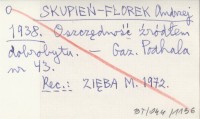 SKUPIEŃ-FLOREK Andrzej
1938. Oszczędność źródłem
dobrobytu. – Gaz. Podhala
nr 43.
Rec.: ZIĘBA M. 1972.